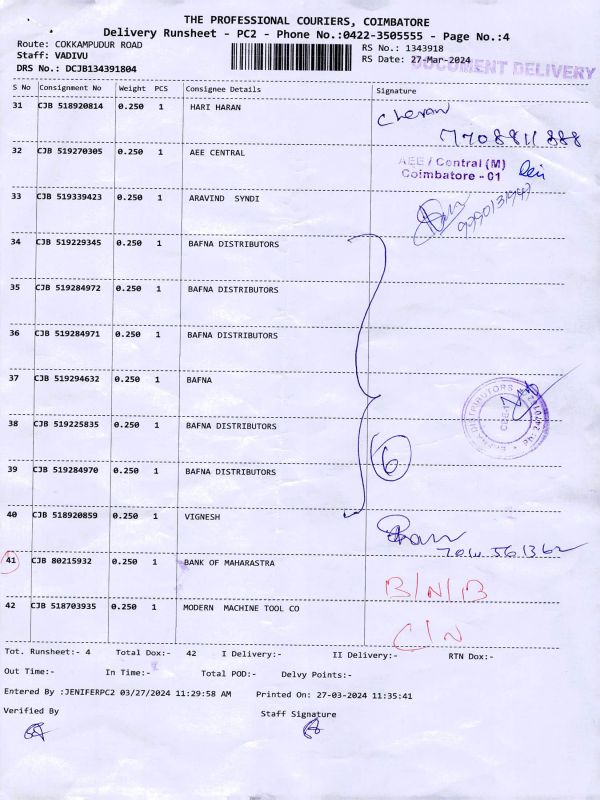 THE PROFESSIONAL COURIERS, COIMBATORE
Delivery Runsheet - PC2 - Phone No.:0422-3505555 - Page No.:4
Route: COKKAMPUDUR ROAD
Staff: VADIVU
DRS No.: DCJB134391804
RS No.: 1343918
RS Date: 27-Mar-2024
DOCUMENT DELIVERY
S No Consignment No Weight PCS Consignee Details Signature
31 CJB 518920814 0.250 1 HARI HARAN
7708811888
32 CJB 519270305 0.250 1 AEE CENTRAL
AEE / Central (M)
Coimbatore - 01
33 CJB 519339423 0.250 1 ARAVIND SYNDI
34 CJB 519229345 0.250 1 BAFNA DISTRIBUTORS
35 CJB 519284972 0.250 1 BAFNA DISTRIBUTORS
36 CJB 519284971 0.250 1 BAFNA DISTRIBUTORS
37 CJB 519294632 0.250 1 BAFNA
38 CJB 519225835 0.250 1 BAFNA DISTRIBUTORS
39 CJB 519284970 0.250 1 BAFNA DISTRIBUTORS
6
40 CJB 518920859 0.250 1 VIGNESH
41 CJB 80215932 0.250 1 BANK OF MAHARASTRA
B/N/B
42 CJB 518703935 0.250 1 MODERN MACHINE TOOL CO
C/N
Tot. Runsheet:- 4 Total Dox:- 42 I Delivery:- II Delivery:- RTN Dox:-
Out Time:- In Time:- Total POD:- Delvy Points:-
Entered By :JENIFERPC2 03/27/2024 11:29:58 AM Printed On: 27-03-2024 11:35:41
Verified By Staff Signature